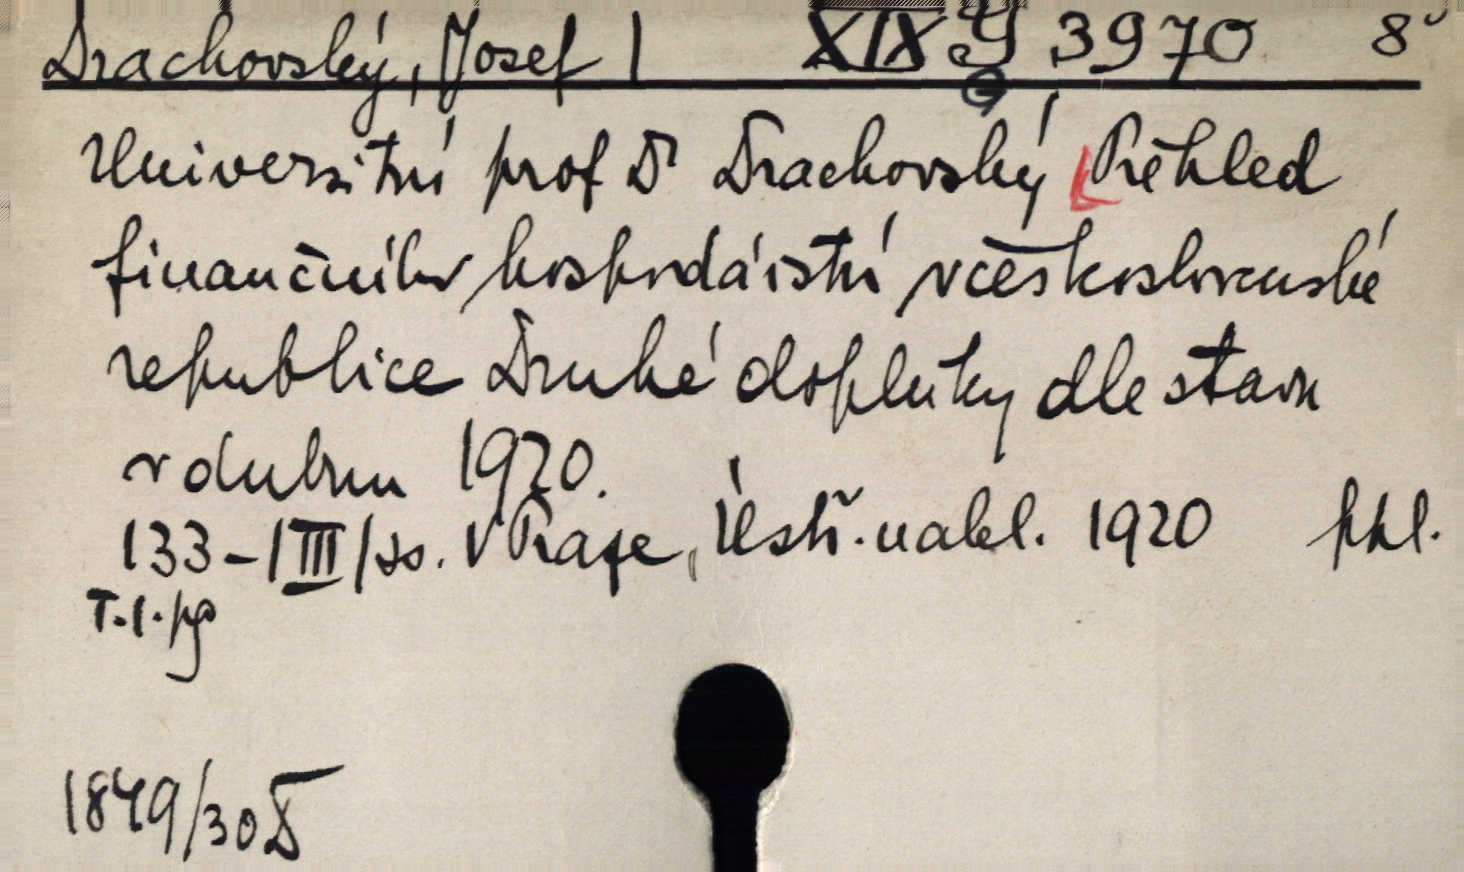 Drachovský, Josef | XIX G 3970 8°
Universitní prof Dr Drachovský Přehled
finančního hospodářství v československé
republice Druhé doplňky dle stavu
v dubnu 1920.
133-|III| ss. V Praze, Ústř. nakl. 1920 ppl.
T.I.
1849/30 D